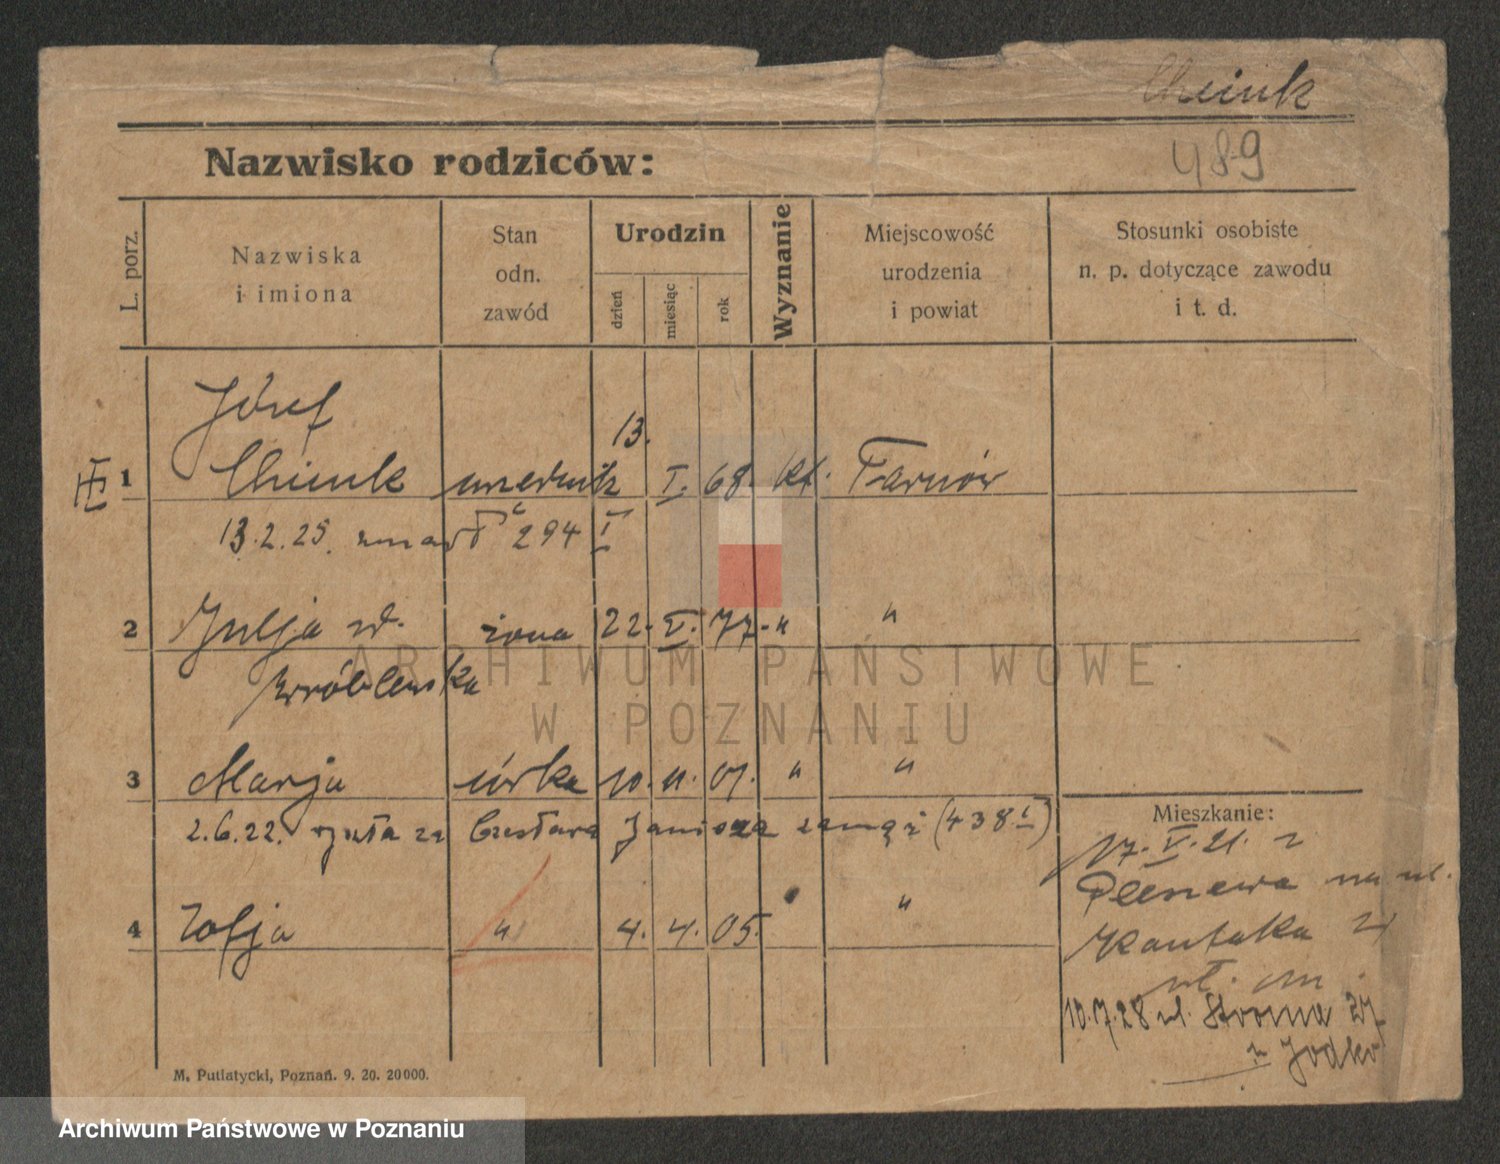 Chciuk
489
Nazwisko rodziców:
L. porz.
Nazwiska
i imiona
Stan
odn.
zawód
Urodzin
dzień
miesiąc
rok
Wyznanie
Miejscowość
urodzenia
i powiat
Stosunki osobiste
n. p. dotyczące zawodu
i t. d.
Józef
13.
1 Chciuk urzednik I. 68. kt. Tarnów
13.2.25. zmarł 294 I
2 Julja żona 22. V. 77. " "
Wróblewska
3 Marja córka 10. 11. 01. " "
2.6.22. wyszła za Czesława Janiszа zamąż (438 I)
4 Zofja " 4. 4. 05. "
Mieszkanie:
17. V. 21. z
Pleszewa na ul.
Kantaka
10.7.28 ul. Stroma
M. Putiatycki, Poznań. 9. 20. 20000.
ARCHIWUM PAŃSTWOWE
W POZNANIU
Archiwum Państwowe w Poznaniu